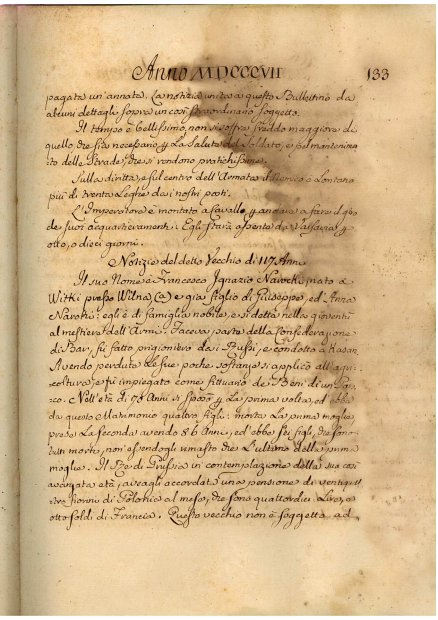 Anno MDCCCVII 133
pagata un'annata. La notizia unita a questo Bullettino da
alcuni dettagli sopra un così straordinario soggetto.
Il tempo è bellissimo, non si soffre freddo maggiore di
quello che sia necessario p. La Salute del Soldato, e pel mantenimen
to delle Strade, che si rendono pratichissime.
Sulla diritta, e sul centro dell'Armata il Nemico è Lontano
più di trenta Leghe da i nostri posti.
L'Imperatore è montato a Cavallo p. andare a fare il giro
de' suoi acquartieramenti: Egli starà assente da Varsavia p.
otto, o dieci giorni.
Notizie del detto Vecchio di 117 Anni
Il suo Nome è Francesco Ignazio Narocki nato a
Witki presso Wilna (a) e già figlio di Giuseppe, ed Anna
Naroki: egli è di famiglia nobile, e si dette nella gioventù
al mestiere dell'Armi. Faceva parte della Confederazione
di Bar, fu fatto prigioniero da i Russi, e condotto a Kasan.
Avendo perduto Le sue poche sostanze si applicò all'agri-
coltura, e fu impiegato come fittuario de Beni di un Par-
oco. Nell'età di 70 Anni si sposò p. La prima volta, ed ebbe
da questo Matrimonio quattro figli: morta La prima moglie
prese La seconda avendo 86 Anni, ed ebbe sei figli, che sono
tutti morti, non essendogli rimasto che L'ultimo della prima
moglie. Il Re di Prussia in contemplazione della sua così
avanzata età, aveagli accordata una pensione di ventiqua
ttro fiorini di Polonia al mese, che sono quattordici Lire, e
otto soldi di Francia. Questo vecchio non è soggetto ad